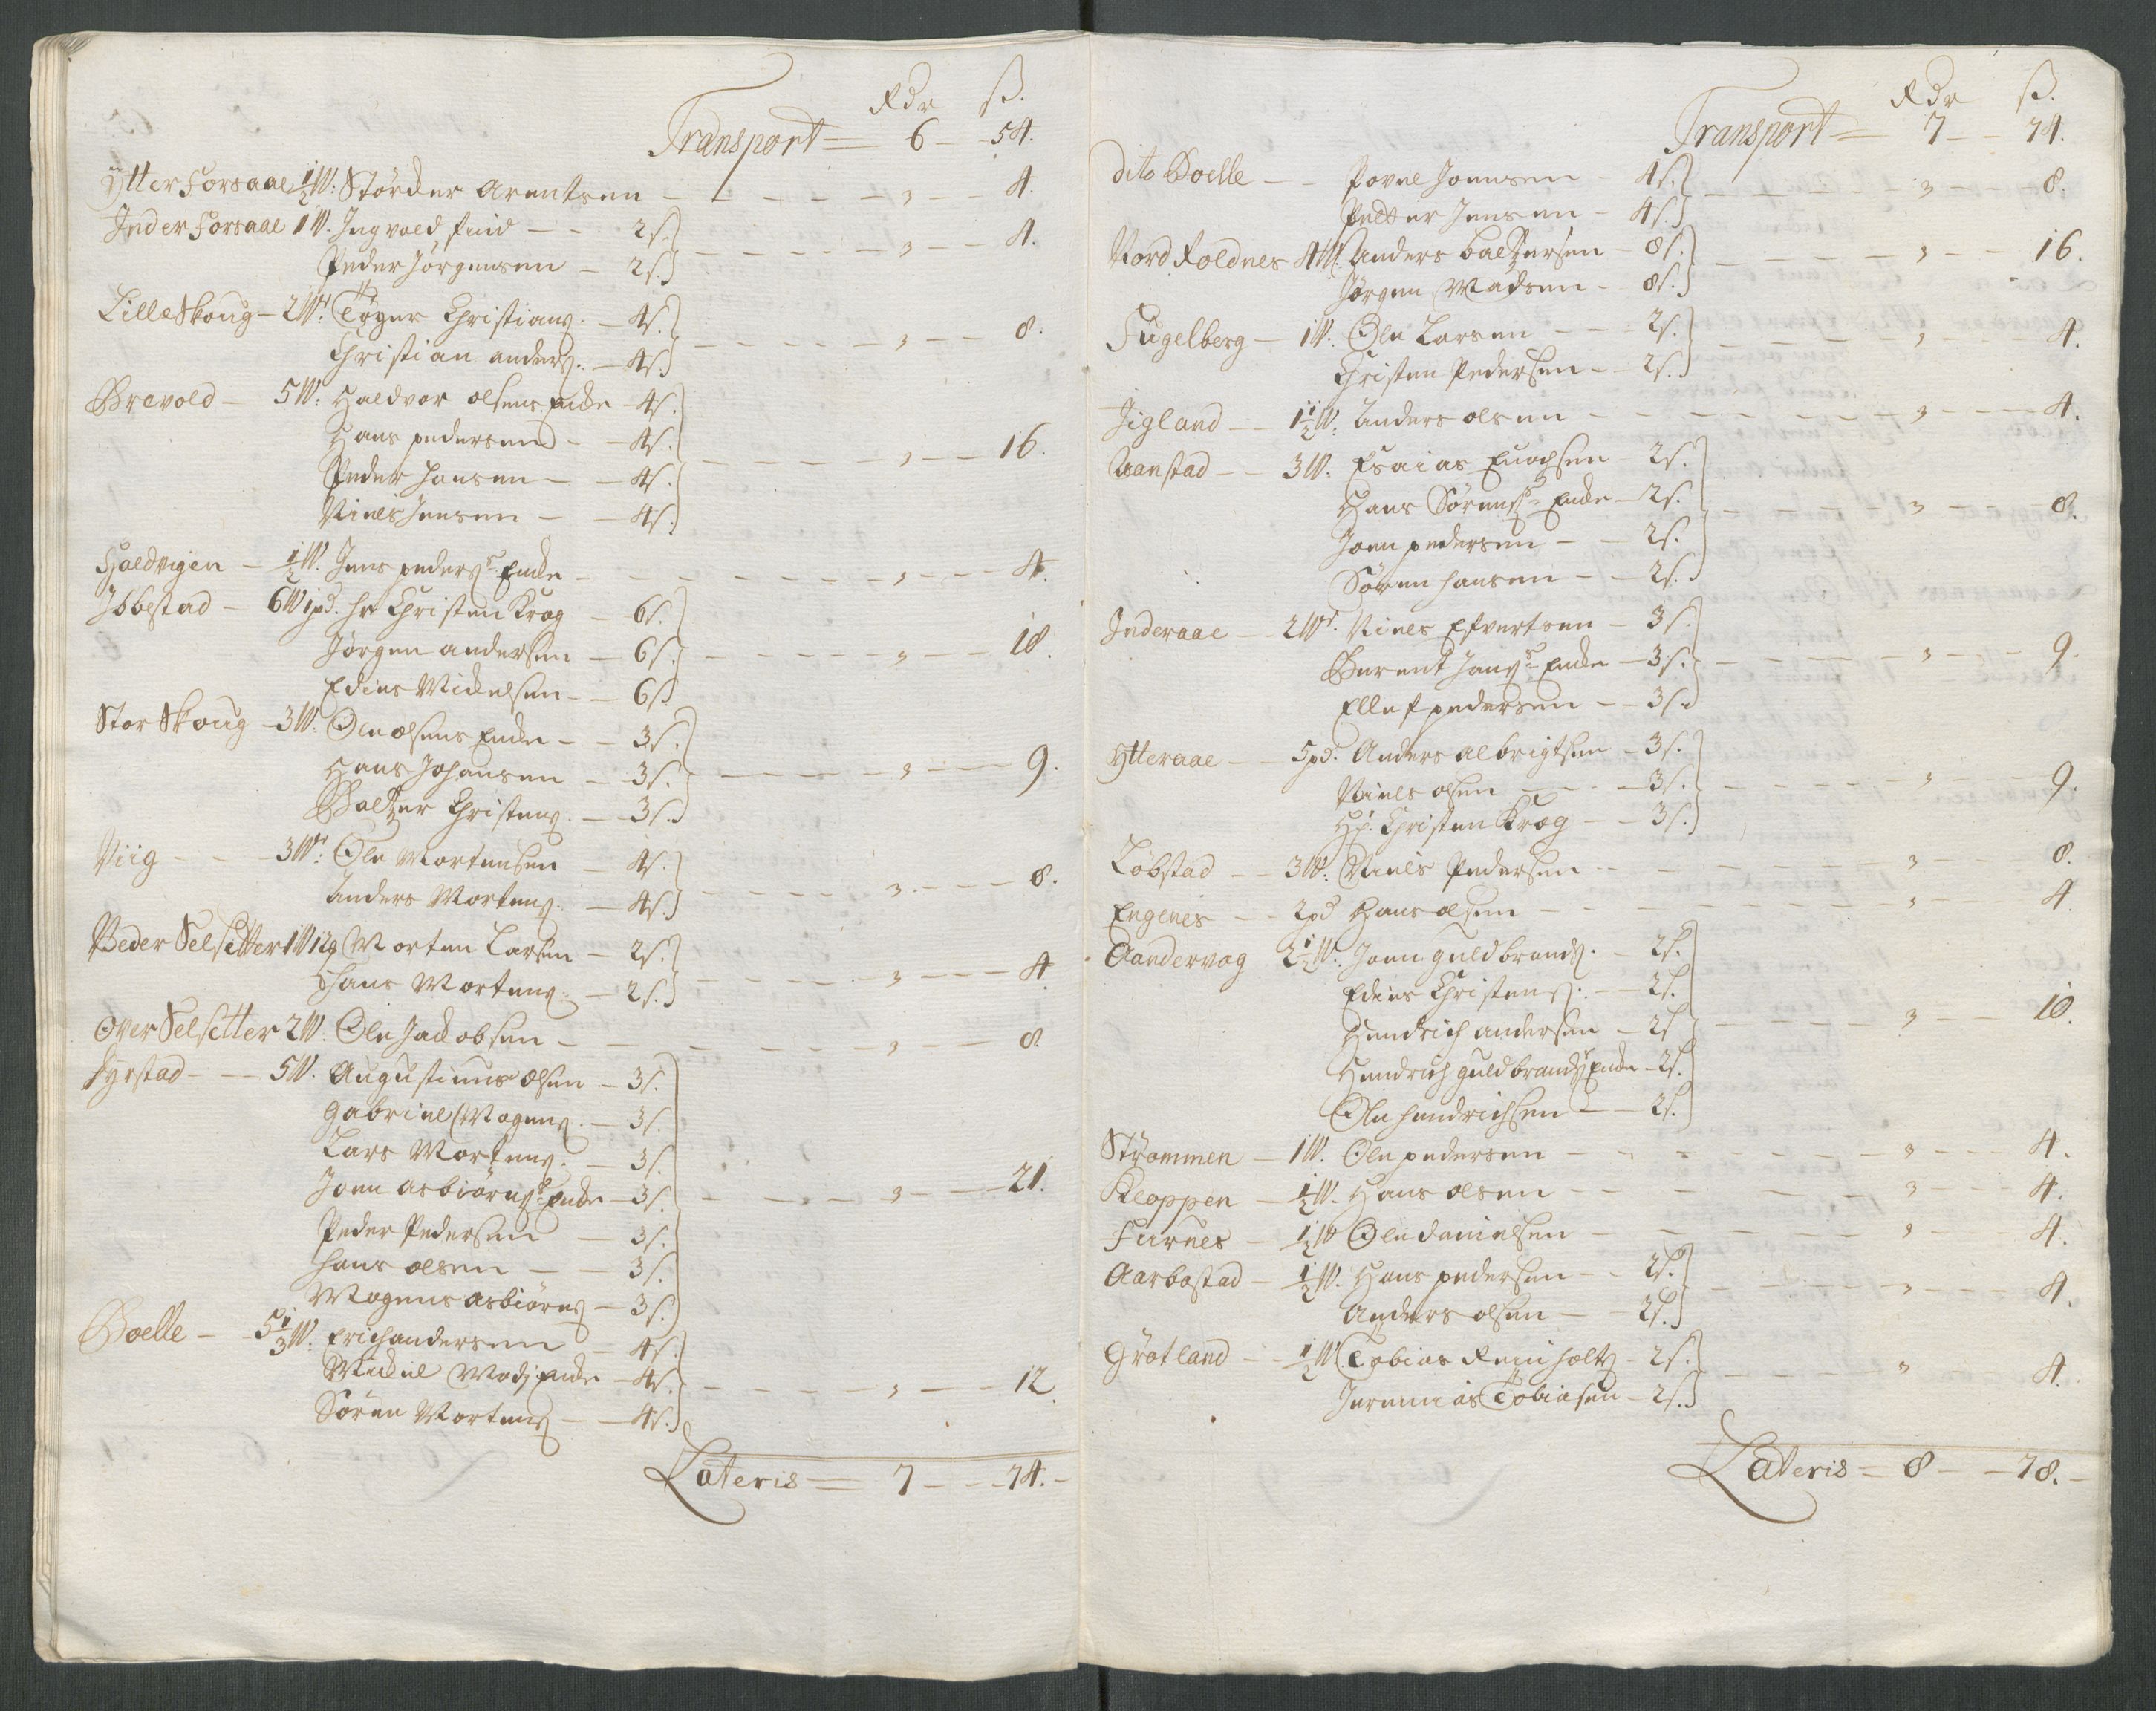 Rdr ß.
Transport 6 - 54.
Ytter Forsaae ½W: Störcker Arentsen - 3 - 4.
Inder Forsaae 1W. Ingvold find - 2s.
Peder Jörgensen - 2s. - 3 - 4.
Lille Skoug - 2W: Töger Christians. - 4s.
Christian anders. - 4s. - 3 - 8.
Brevold - 5W: Haldvor olsens Encke - 4s.
Hans pedersen - 4s.
Peder Hansen - 4s. - 3 - 16.
Niels Jensen - 4s.
Haldvigen - ½W. Jens peders Encke - 3 - 4.
Ibbestad - 6W 1pd. hr Christen Krog - 6s.
Jörgen andersen - 6s. - 3 - 18.
Edies Mickelsen - 6s
Stor Skoug - 3W: Ole olsens Encke - 3s.
Hans Johansen - 3s. - 3 - 9.
Baltzer Christens. - 3s.
Viig - 3W: Ole Mortensen - 4s.
Anders Mortens. - 4s. - 3 - 8.
Neder Selsetter 1W 12 Morten Larsen - 2s.
Hans Mortens. - 2s. - 3 - 4.
Over Selsetter 2W. Ole Jackobsen - 3 - 8.
Hyrstad - 5W. Augustinus olsen - 3s.
Gabriel Mogens. - 3s.
Lars Mortens. - 3s.
Joen asbiörns Encke - 3s. - 3 - 21.
Peder Pedersen - 3s.
Hans olsen - 3s.
Mogens asbiörns - 3s.
Boelle - 5⅓W: Erich andersen - 4s.
Mickel Mads Encke - 4s. - 3 - 12.
Sören Mortens - 4s.
Lateris 7 - 74.
Rdr ß.
Transport 7 - 74.
dito Boelle - Povel Joensen - 4s.
Petter Jensen - 4s. - 3 - 8.
Nord Roldnes 4W. Anders baltzersen - 8s.
Jörgen Madsen - 8s. - 3 - 16.
Fugelberg - 1W: Ole Larsen - 2s.
Christen Pedersen - 2s. - 3 - 4.
Jigland - 1½W: Anders olsen - 3 - 4.
Aanstad - 3W. Esaias Enochsen - 2s.
Hans Sörens Encke - 2s.
Joen pedersen - 2s. - 3 - 8.
Sören hansen - 2s.
Inderaae - 2W. Niels Efvertsen - 3s.
Berent Jans Encke - 3s. - 3 - 9.
Ellef pedersen - 3s.
Ytteraae - 5pd. Anders albrigtsen - 3s.
Niels olsen - 3s. - 3 - 9.
Hr. Christen Krog - 3s.
Löbstad - 3W: Niels Pedersen - 3 - 8.
Engenes - 2pd Hans olsen - 3 - 4.
Aandervag 2½W. Joen guldbrands. - 2s.
Edies Christens. - 2s.
Hendrich andersen - 2s - 3 - 10.
Hendrich guldbrands Encke - 2s.
Ole hendrichsen - 2s.
Strömmen - 1W. Ole pedersen - 3 - 4.
Kloppen - ½W. Hans olsen - 3 - 4.
Furnes - ½W Ole danielsen - 3 - 4.
Aarbostad - ½W. Hans pedersen - 2s.
Anders olsen - 2s. - 3 - 4.
Grötland - ½W Tobias Reinholts - 2s.
Jeremias Tobiasen - 2s. - 3 - 4.
Lateris 8 - 78.